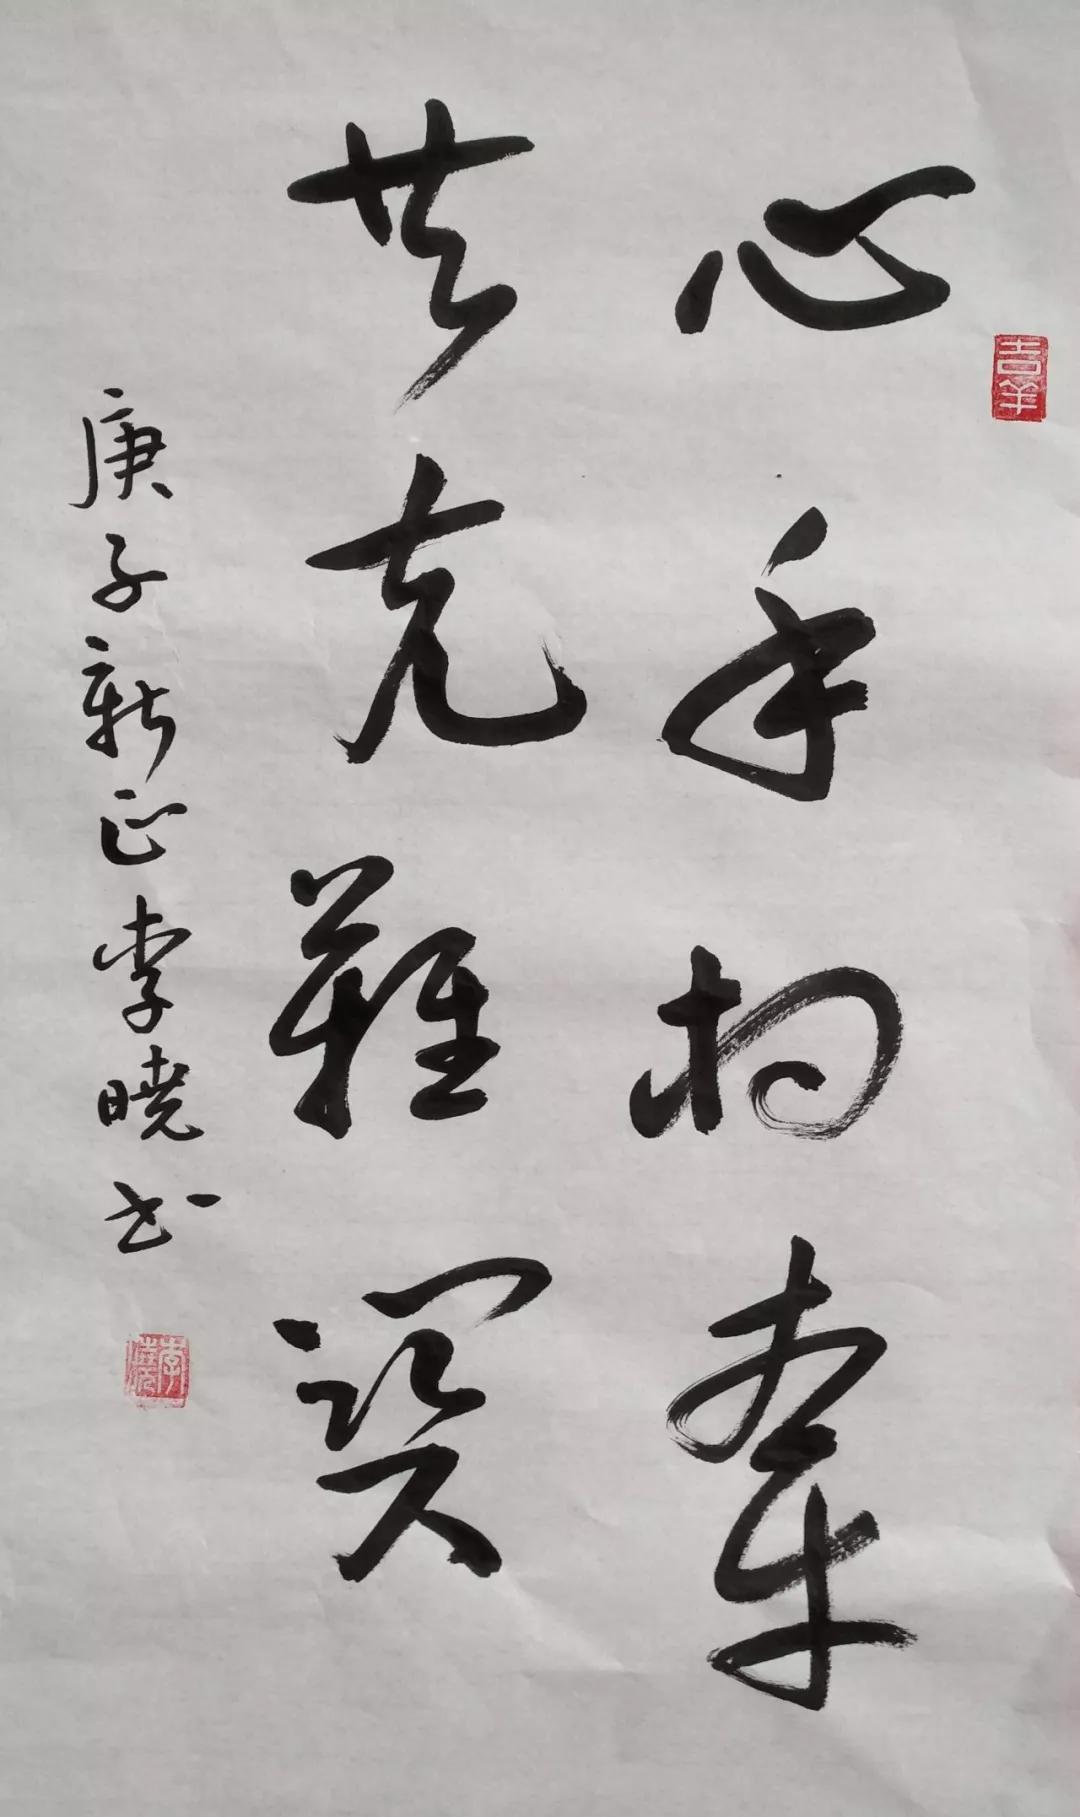 心手相牵
共克难关
庚子新正李晓书
吉羊